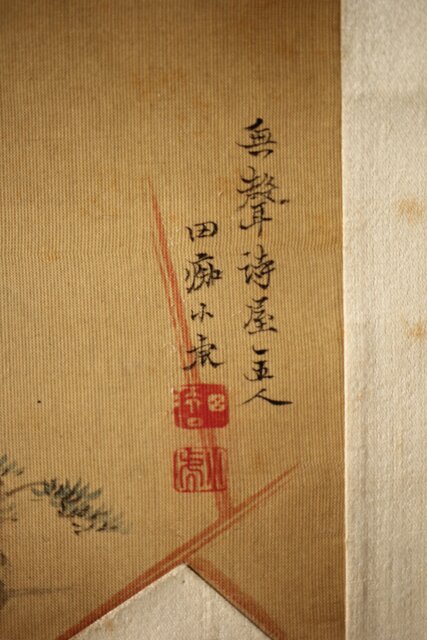 無聲詩屋主人
田癡小虎